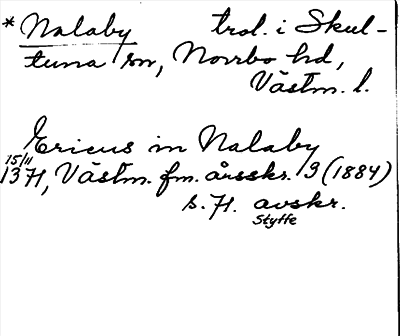 * Nalaby trol. i Skul-
tuna sn, Norrbo hd,
Västm. l.
Ericus in Nalaby
15/11
1371, Västm. fm. årsskr. 9 (1884)
s. 71. avskr.
Styffe